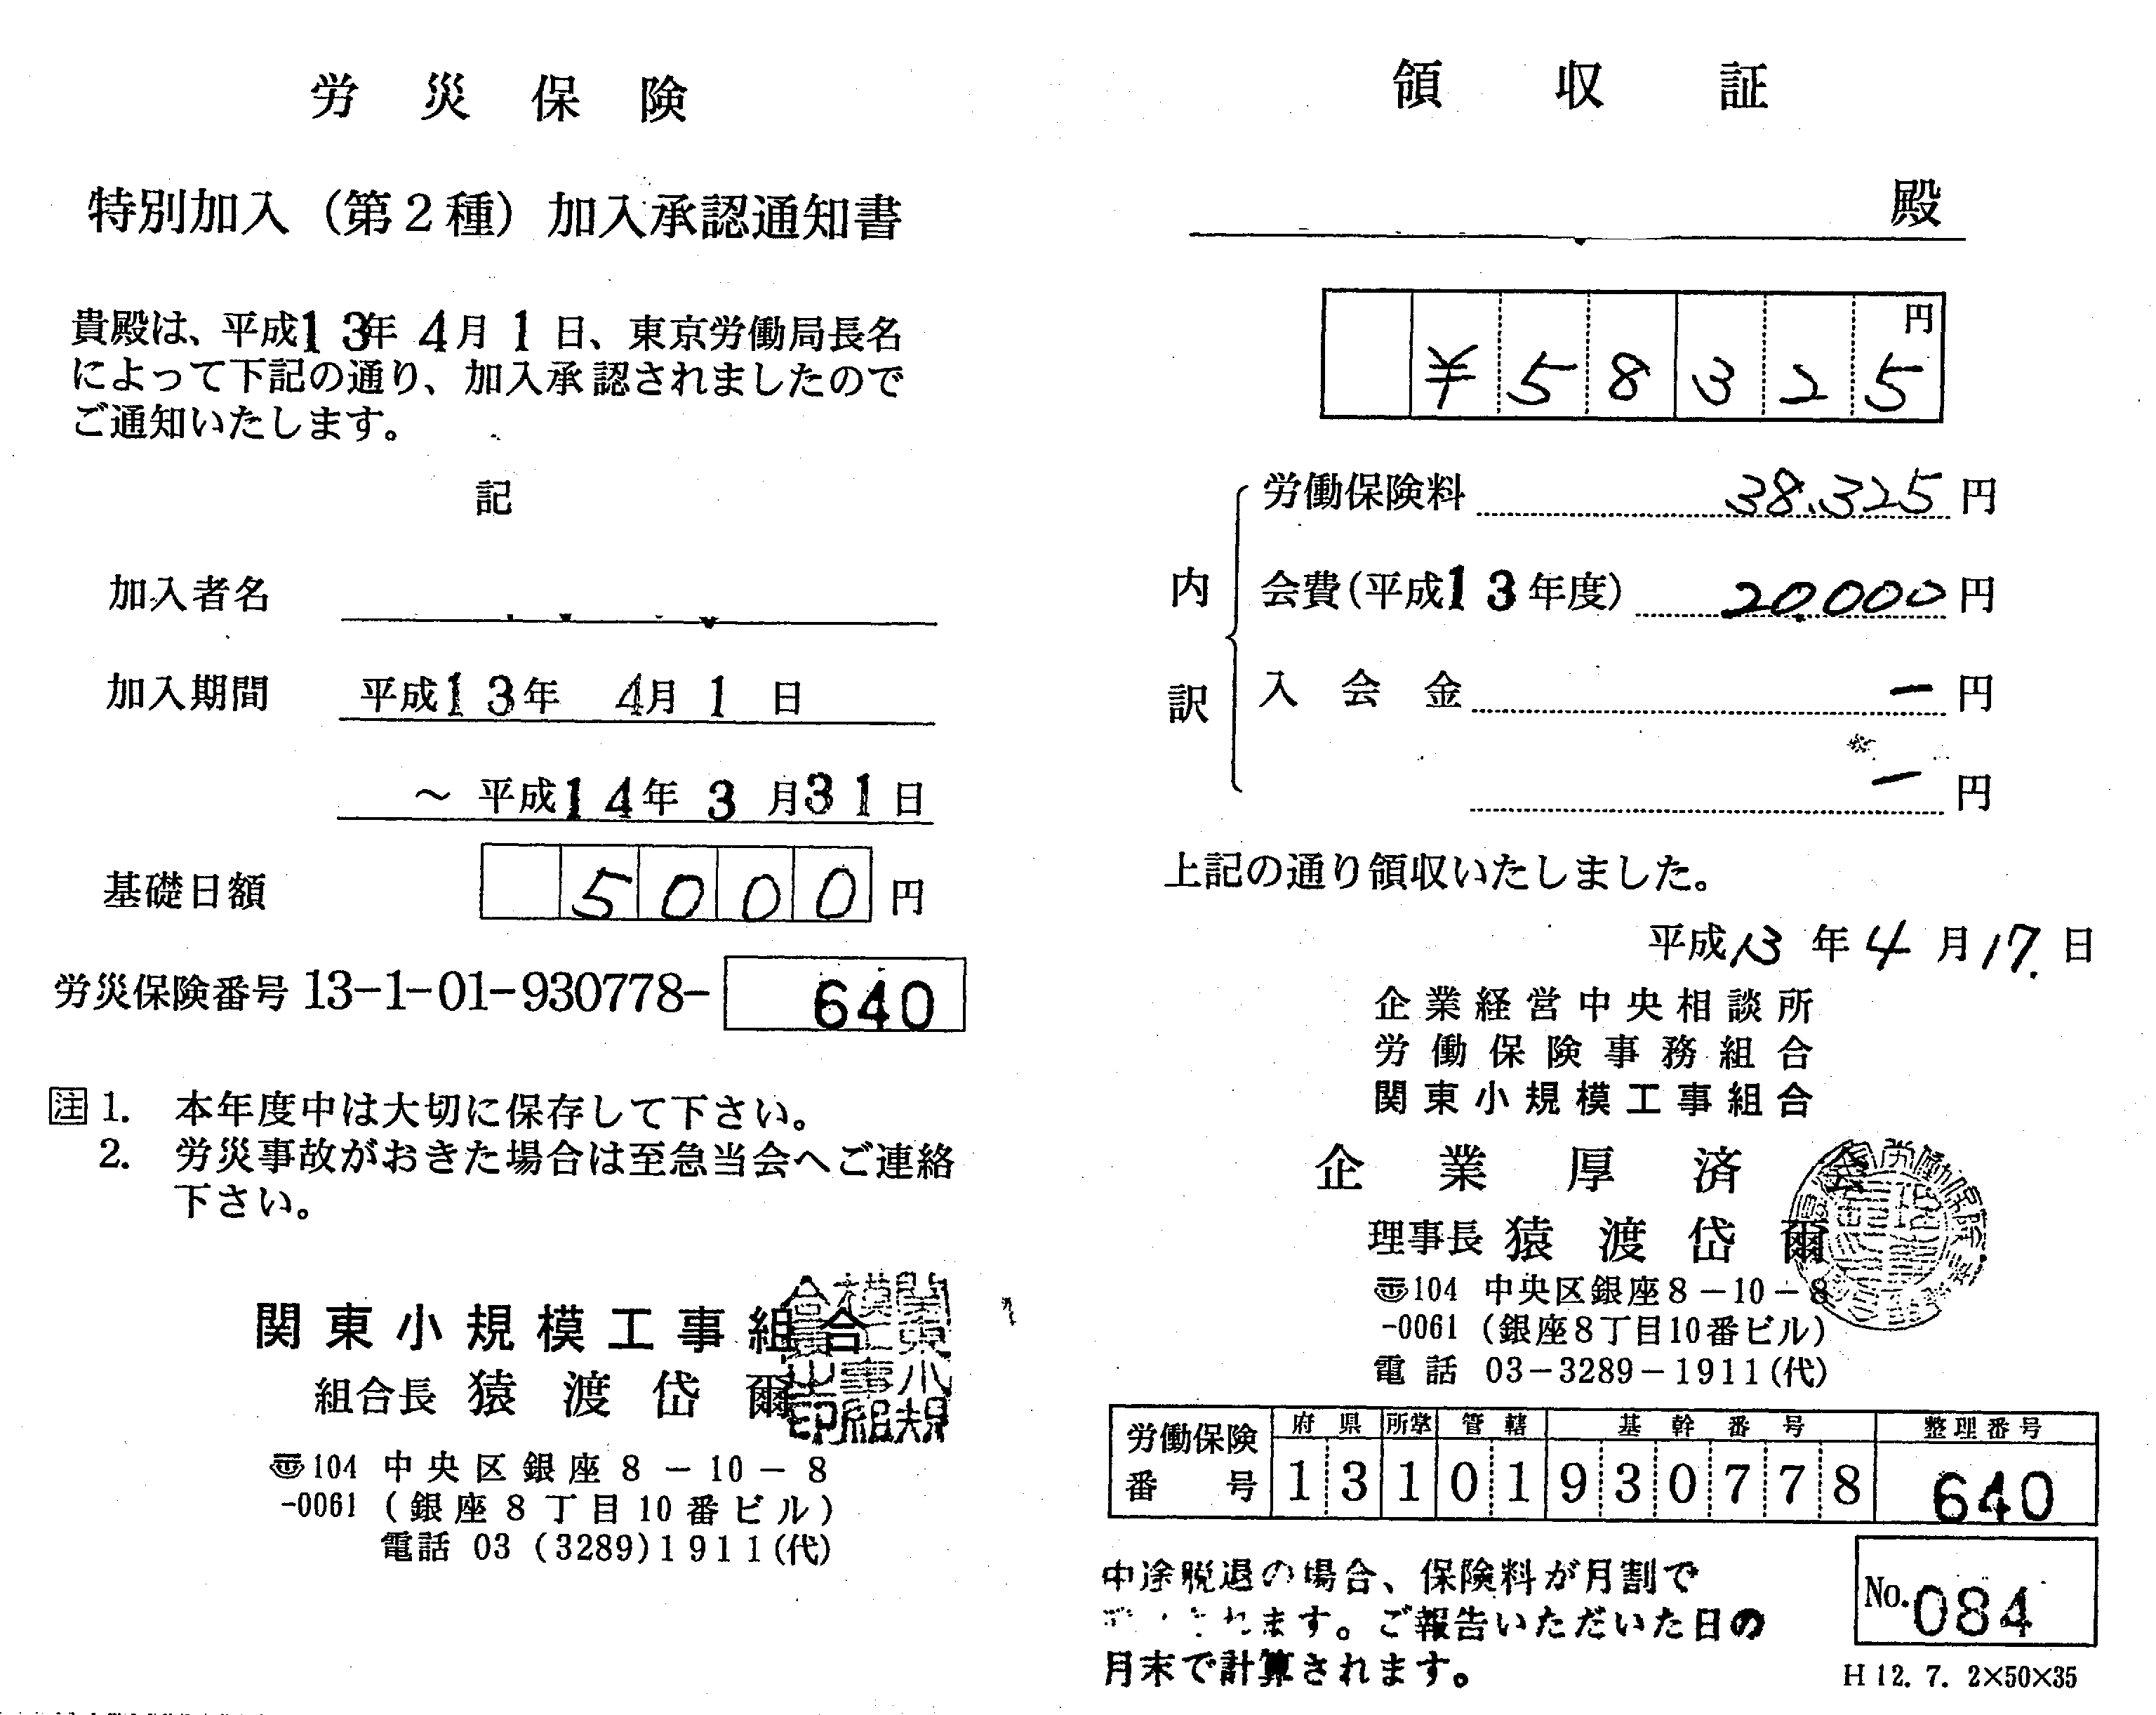 労災保険
特別加入（第２種）加入承認通知書
貴殿は、平成13年 4月 1 日、東京労働局長名
によって下記の通り、加入承認されましたので
ご通知いたします。
記
加入者名
加入期間 平成13年 4月 1 日
～ 平成14年 3 月31日
基礎日額 5000円
労災保険番号 13-1-01-930778- 640
注 1. 本年度中は大切に保存して下さい。
2. 労災事故がおきた場合は至急当会へご連絡
下さい。
関東小規模工事組合
組合長 猿渡岱爾
〒104 中央区銀座８－10－８
-0061 (銀座８丁目10番ビル)
電話 03 (3289)1911(代)
領収証
殿
円
¥58325
内訳
労働保険料 38,325円
会費(平成13年度) 20,000円
入会金 ー円
ー円
上記の通り領収いたしました。
平成13年4月17日
企業経営中央相談所
労働保険事務組合
関東小規模工事組合
企業厚済会
理事長 猿渡岱爾
〒104 中央区銀座８－10－８
-0061 (銀座８丁目10番ビル)
電話 03－3289－1911(代)
労働保険番号 府県 所掌 管轄 基幹番号 整理番号
13 1 01 930778 640
中途脱退の場合、保険料が月割で
ます。ご報告いただいた日の
月末で計算されます。
No.084
H 12. 7. 2×50×35